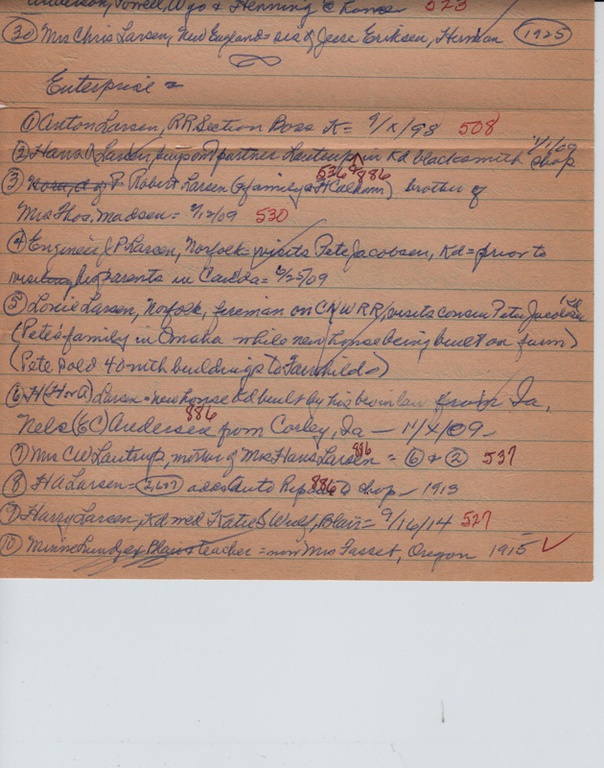 Anderson, Powell, Wyo & Henning @ 523
(30) Mrs Chris Larsen, New England = sis of Jesse Eriksen, Herman (1925)
Enterprise =
(1) Anton Larsen, RR Section Boss K = 9/X/98 508
(2) Hans A Larsen, buys out partner Lautrup in Kd blacksmith shop 1/1/09
536 886
(3) Nora, d of P. Robert Larsen (& family @ Calhoun) brother of
Mrs Thos. Madsen = 9/12/09 530
(4) Engineer J P Larsen, Norfolk = visits Pete Jacobsen, Kd = prior to
visiting his parents in Canada = 6/25/09
(5) Louie Larsen, Norfolk, fireman on CNW RR, visits cousin Peter Jacobsen
(Pete's family in Omaha while new house being built on farm)
(Pete sold 40 with buildings to Fairchild)
(6) H (H or A) Larsen = new house Kd built by his bro in law from Ia,
Nels (EC) Andersen from Corley, Ia — 11/X/09 —
886
(7) Mrs CW Lautrup, mother of Mrs Hans Larsen = (6) & (2) 537
886
(8) HA Larsen = (2,607) adds Auto Repair to shop — 1913
886
(9) Harry Larsen, Kd wed Katie S Wulf, Blair = 9/16/14 527
(10) Minnie Lundy, ex Blair teacher = now Mrs Fasset, Oregon 1915 ✓